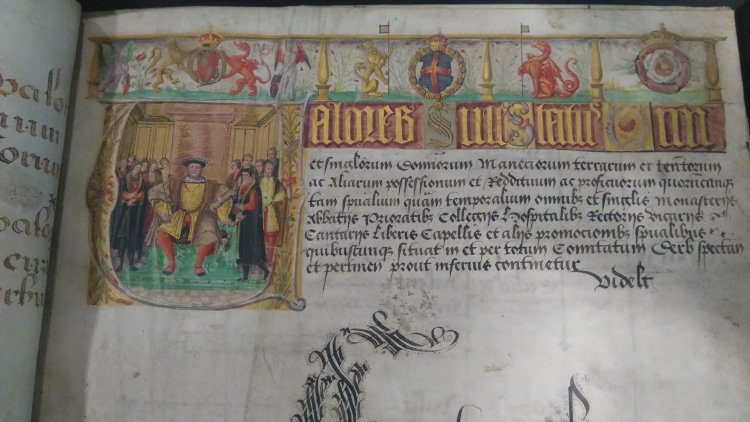 Valores sive
et singlorum Domniorum Maneriorum terrarum et tentorum
ac Aliarum possessionum et Reddituum ac proficiorum quorumcunq
tam spualium quam temporalium omnibus et singlis monasterijs
Abbathijs Prioratibus Collegijs Hospitalibus Rectorijs vicarijs
Cantarijs Liberis Capellis et alijs promocionibus spualibus
quibuscunque situat in et per totum Comitatum Derb spectan
et pertinen prout inferius continetur
Videlt